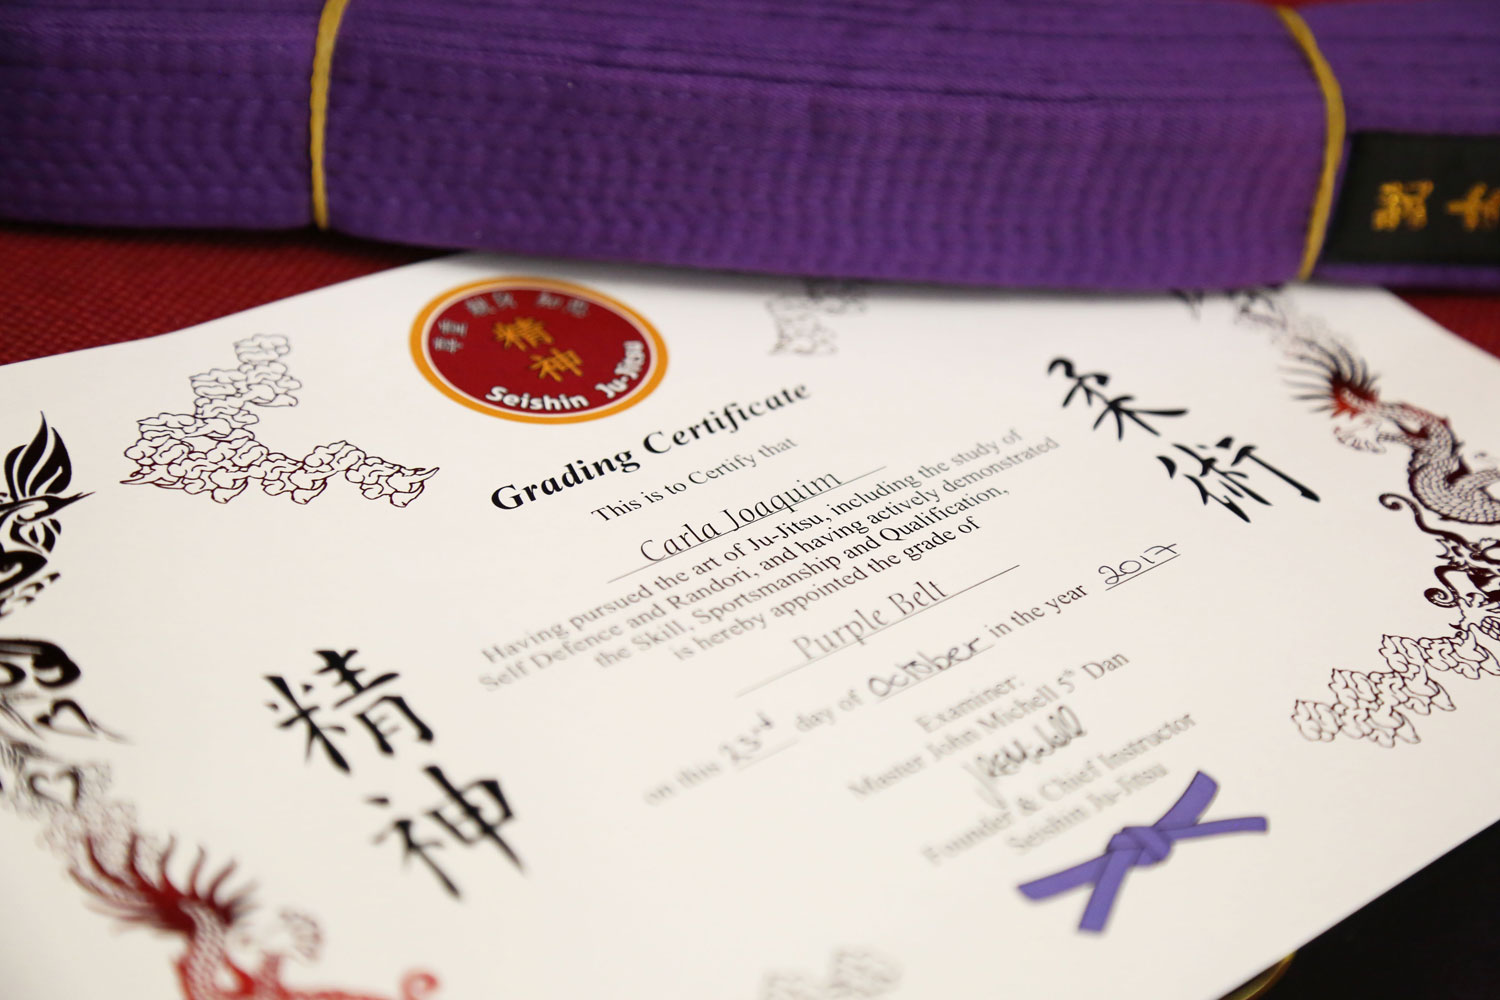 精神
Seishin Ju-Jitsu
Grading Certificate
This is to Certify that
Carla Joaquim
Having pursued the art of Ju-Jitsu, including the study of
Self Defence and Randori, and having actively demonstrated
the Skill, Sportsmanship and Qualification,
is hereby appointed the grade of
Purple Belt
on this 23rd day of October in the year 2017
Examiner:
Master John Michell 5th Dan
Founder & Chief Instructor
Seishin Ju-Jitsu
柔術
精神